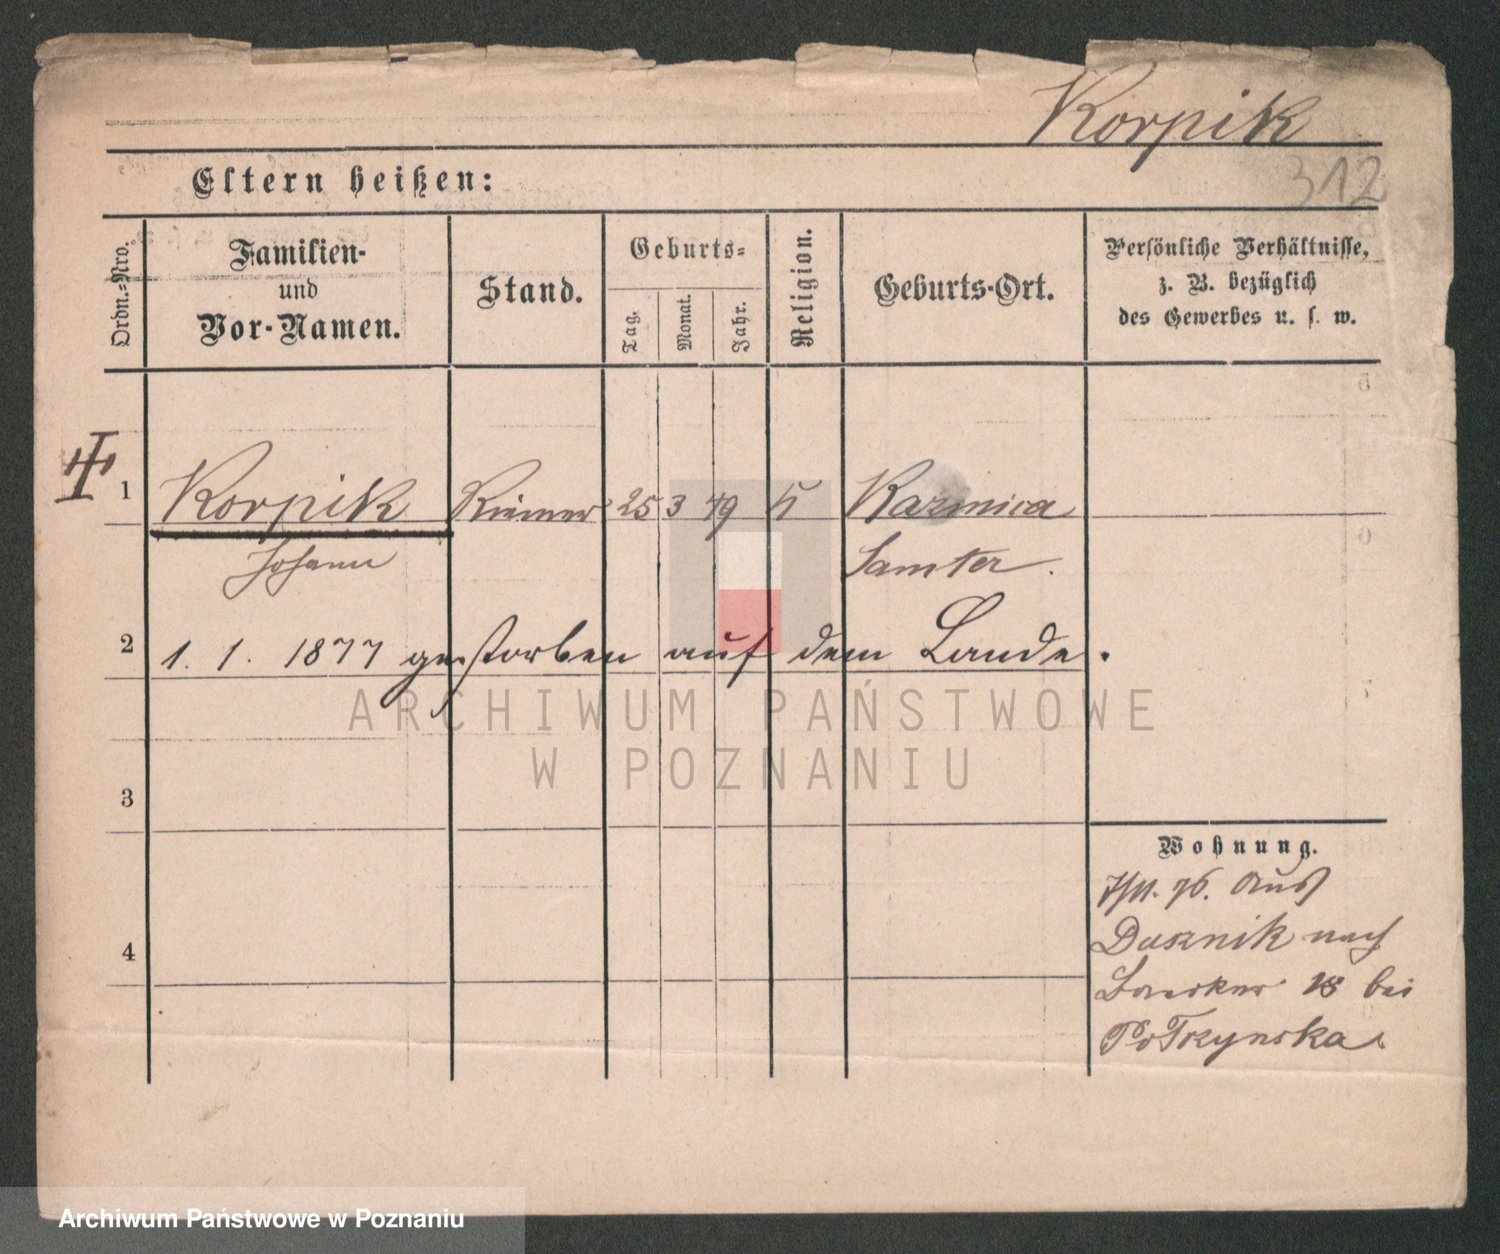 Korpik
312
Eltern heißen:
Ordn.-Nro.
Familien-
und
Vor-Namen.
Stand.
Geburts-
Tag.
Monat.
Jahr.
Religion.
Geburts-Ort.
Persönliche Verhältnisse,
z. B. bezüglich
des Gewerbes u. s. w.
1 Korpik Riemer 25 3 49 Kazmira
Johann Samter.
2 1. 1. 1877 gestorben auf dem Lande.
3
4
Wohnung.
76. aus
Dusznik nach
18 bei
Potrzynska.
ARCHIWUM PAŃSTWOWE
W POZNANIU
Archiwum Państwowe w Poznaniu